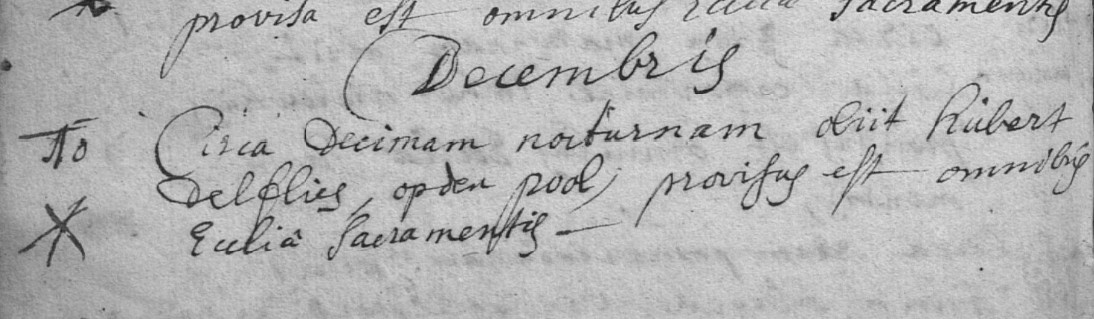 provisa est omnibus Ecclia Sacramentis
Decembris
10 Circa Decimam nocturnam obiit hubert
Delflies, op den pool, provisus est omnibus
Ecclia Sacramentis